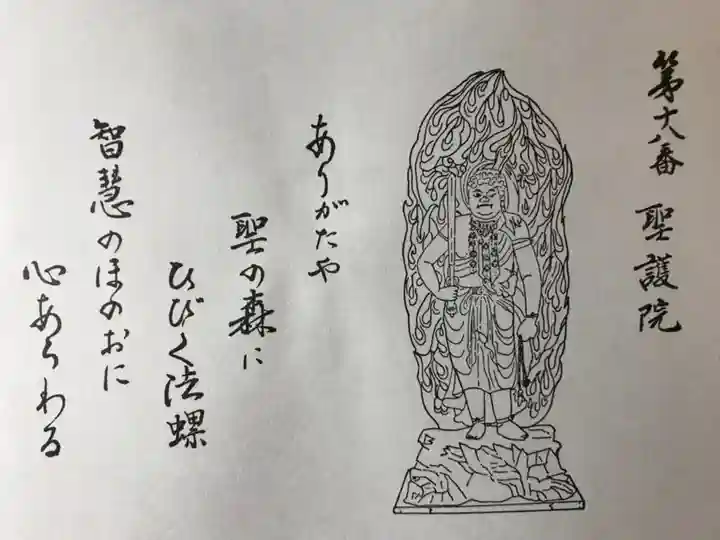 第十八番 聖護院
ありがたや
聖の森に
ひびく法螺
智慧のほのおに
心あらわる